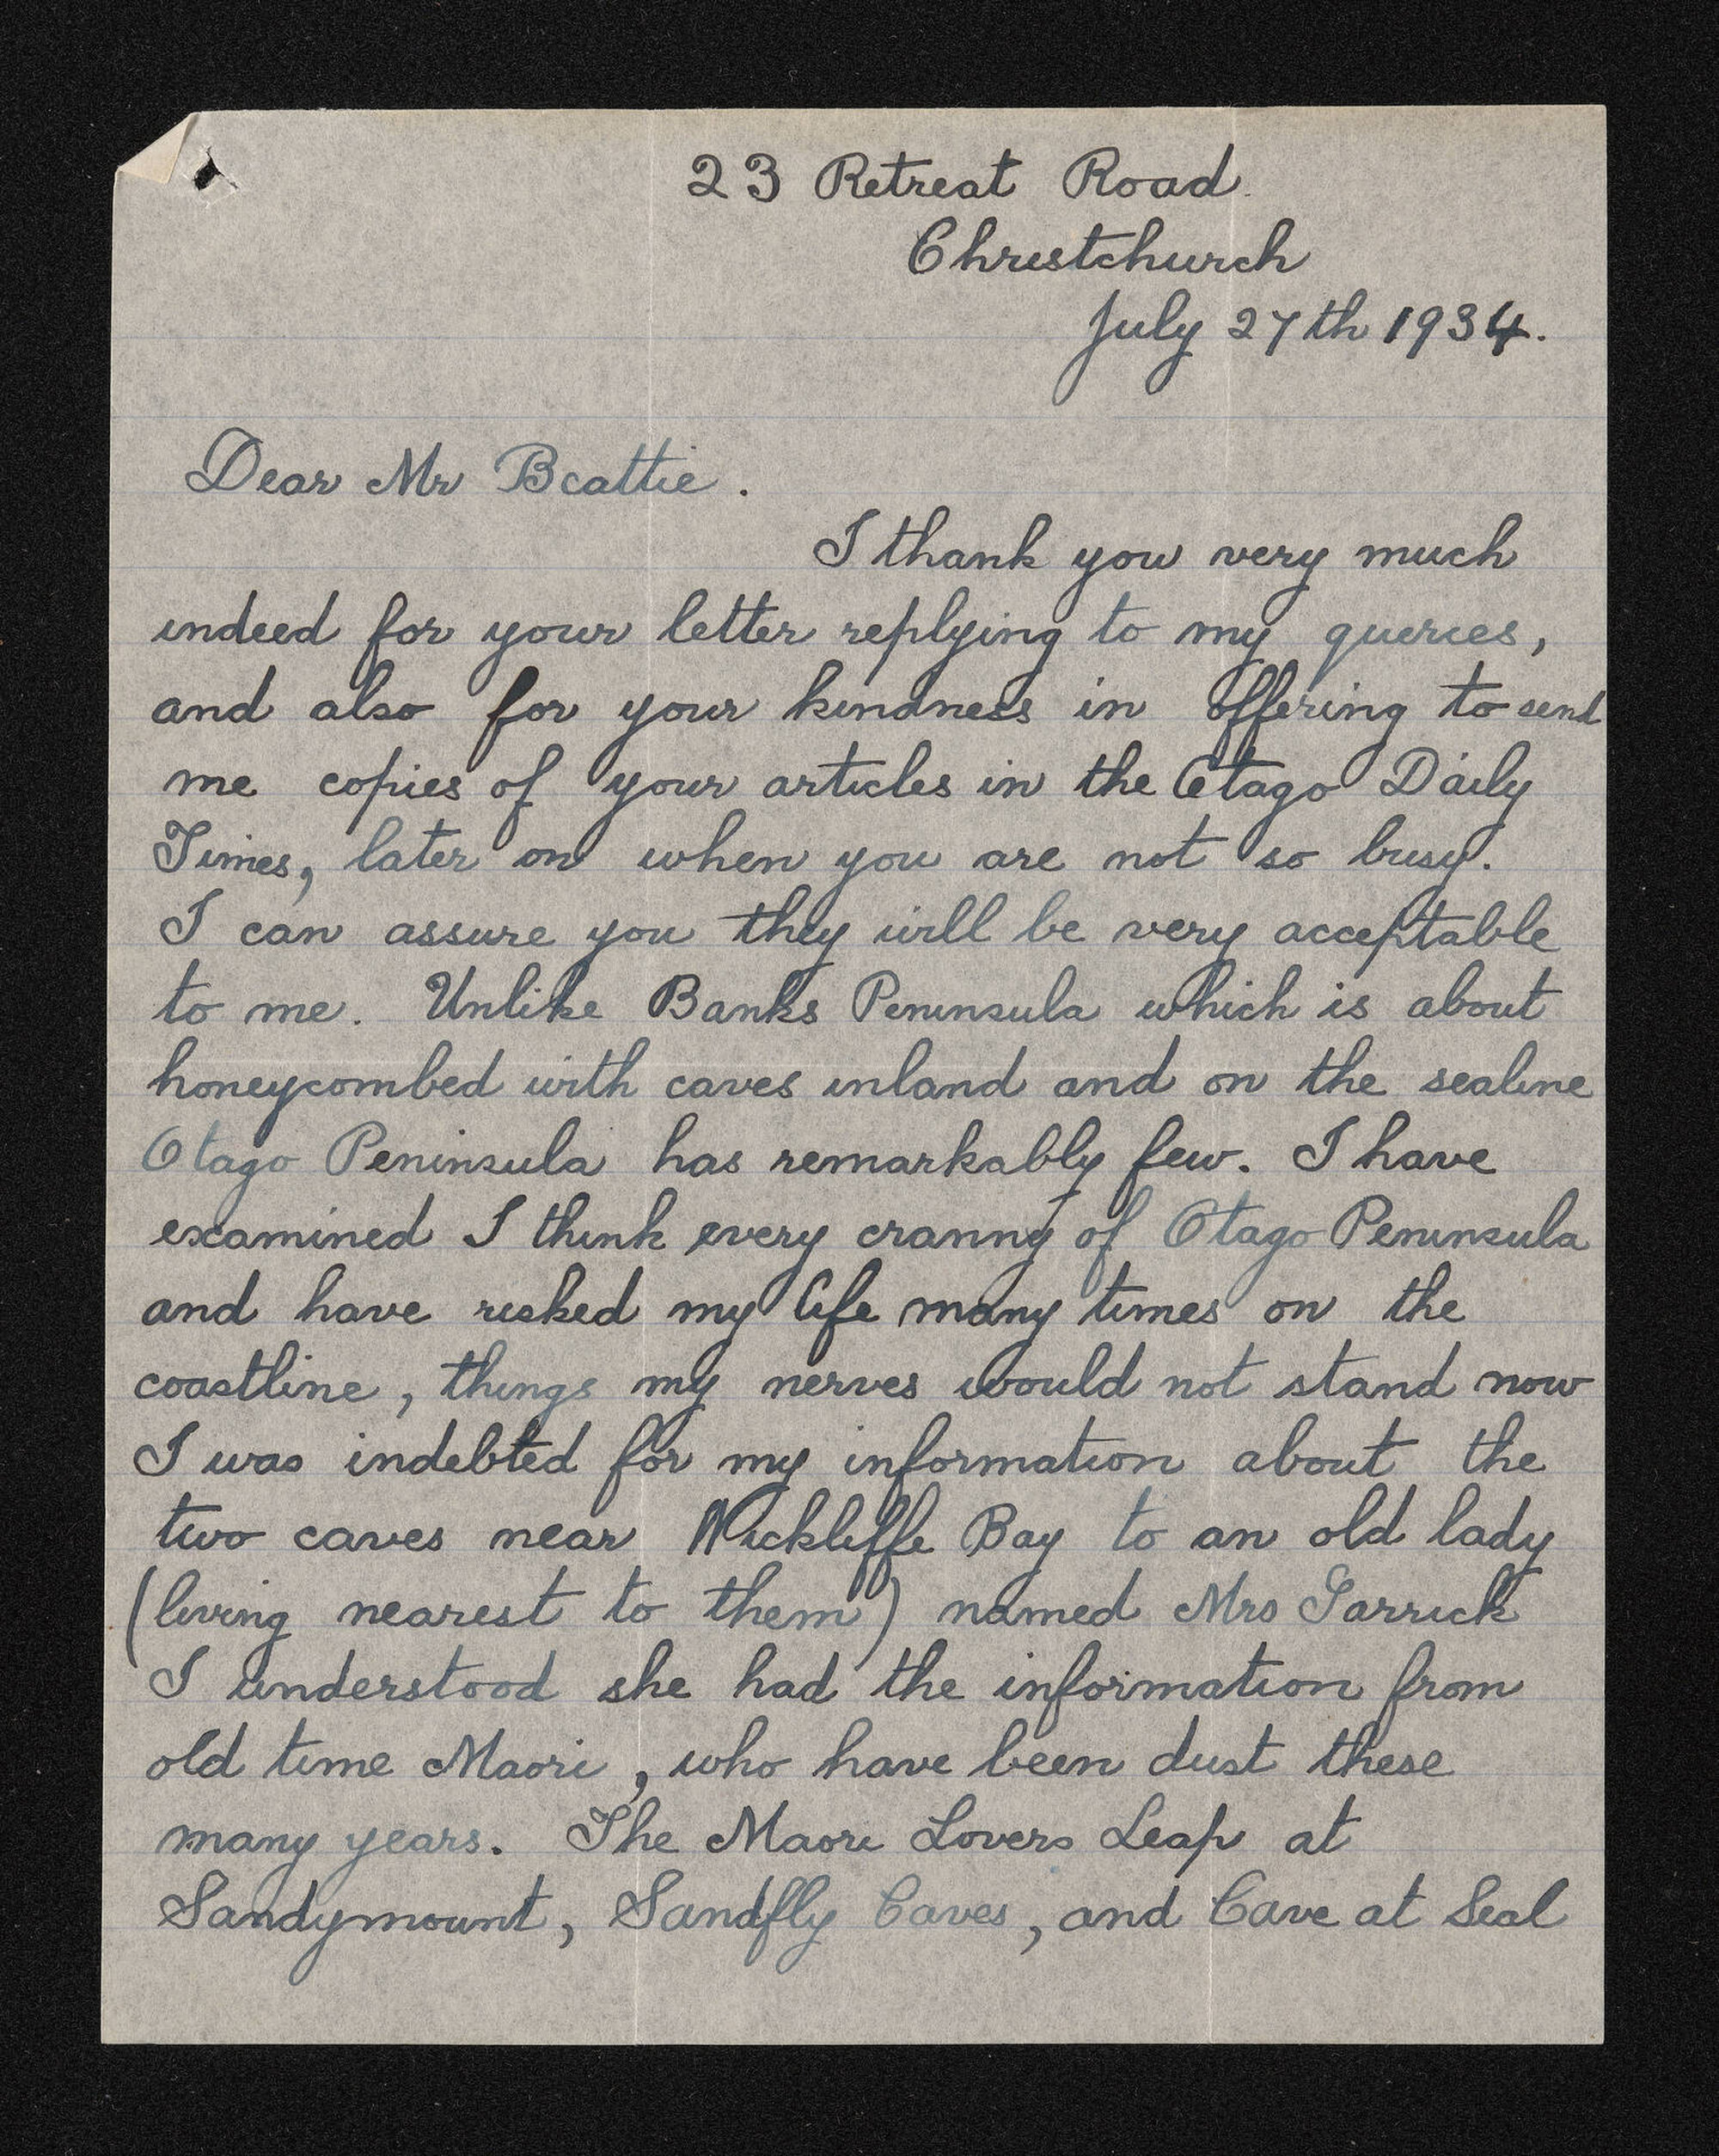 23 Retreat Road.
Christchurch
July 27th 1934.
Dear Mr Beattie.
I thank you very much
indeed for your letter replying to my queries,
and also for your kindness in offering to send
me copies of your articles in the Otago Daily
Times, later on when you are not so busy.
I can assure you they will be very acceptable
to me. Unlike Banks Peninsula which is about
honeycombed with caves inland and on the sealine
Otago Peninsula has remarkably few. I have
examined I think every cranny of Otago Peninsula
and have risked my life many times on the
coastline, things my nerves would not stand now
I was indebted for my information about the
two caves near Wickliffe Bay to an old lady
(living nearest to them) named Mrs Garrick
I understood she had the information from
old time Maori, who have been dust these
many years. The Maori Lovers Leap at
Sandymount, Sandfly Caves, and Cave at Seal